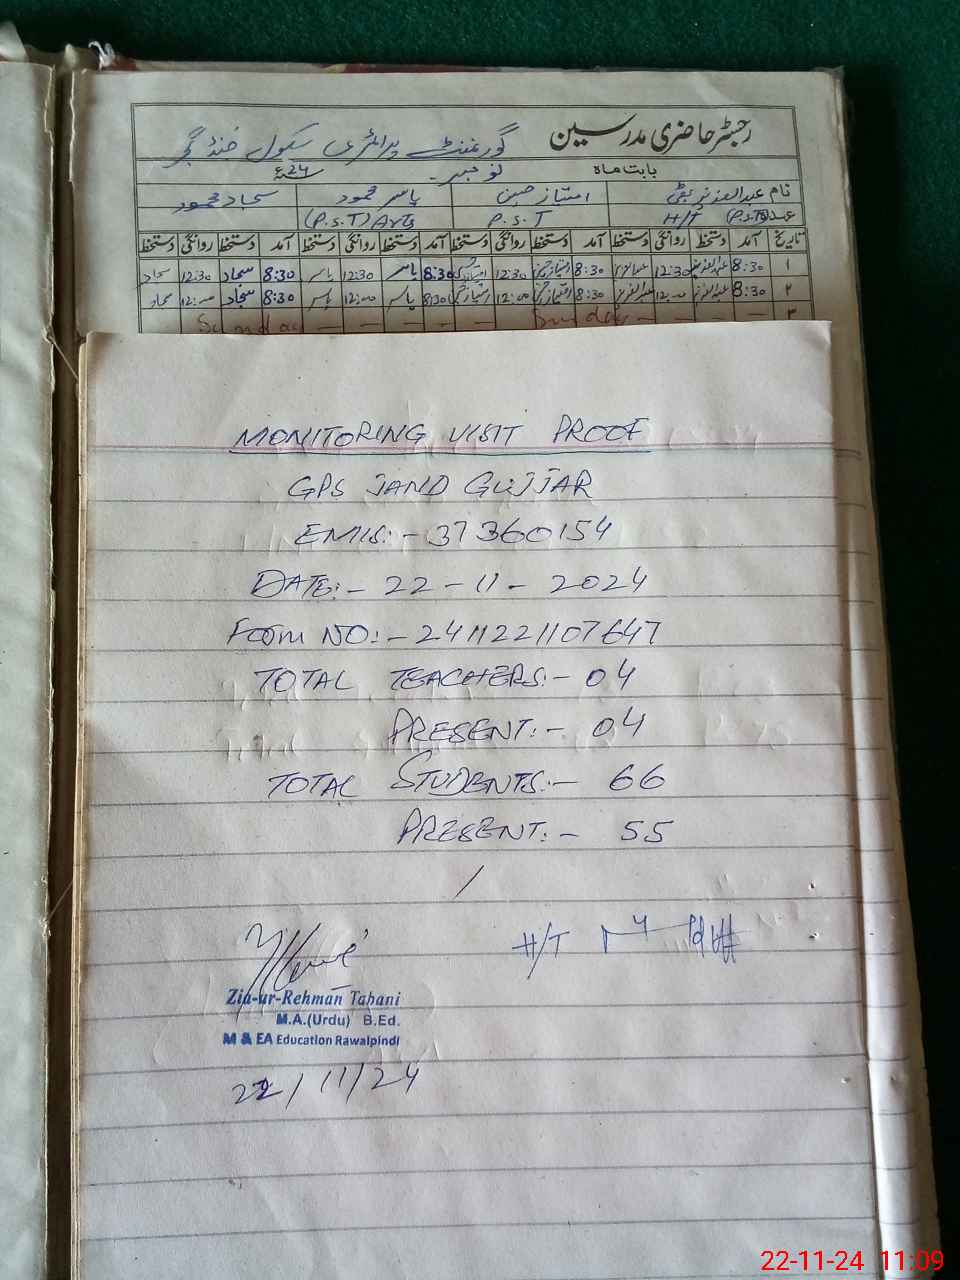 رجسٹر حاضری مدرسین گورنمنٹ پرائمری سکول جنڈ گجر
بابت ماہ نومبر 24ء
نام عبدالعزیز امتیاز حسین یاسر محمود سجاد محمود
عہدہ (P.S.T) H/T P.S.T (P.S.T) Arts
تاریخ آمد دستخط روانگی دستخط آمد دستخط روانگی دستخط آمد دستخط روانگی دستخط آمد دستخط روانگی دستخط
۱ 8:30 عبدالعزیز 12:30 8:30 12:30 8:30 یاسر 12:30 یاسر 8:30 سجاد 12:30 سجاد
۲ 8:30 عبدالعزیز 12:00 عبدالعزیز 8:30 12:00 8:30 یاسر 12:00 یاسر 8:30 سجاد 12:00 سجاد
۳ Sunday Sunday
MONITORING VISIT PROOF
GPS JAND GUJJAR
EMIS:- 37360154
DATE:- 22-11-2024
Form NO:- 2411221107647
TOTAL TEACHERS:- 04
PRESENT:- 04
TOTAL STUDENTS:- 66
PRESENT:- 55
H/T
Zia-ur-Rehman Tahani
M.A.(Urdu) B.Ed.
M & EA Education Rawalpindi
22/11/24
22-11-24 11:09